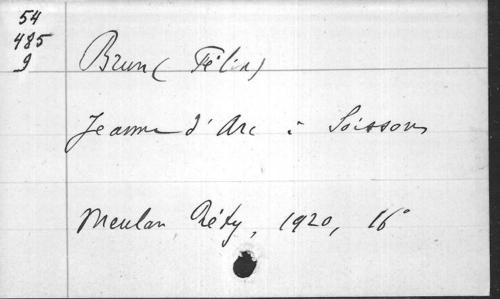 54
485
9
Brun (Félix)
Jeanne d'Arc à Soissons
Meulan Réty, 1920, 16°